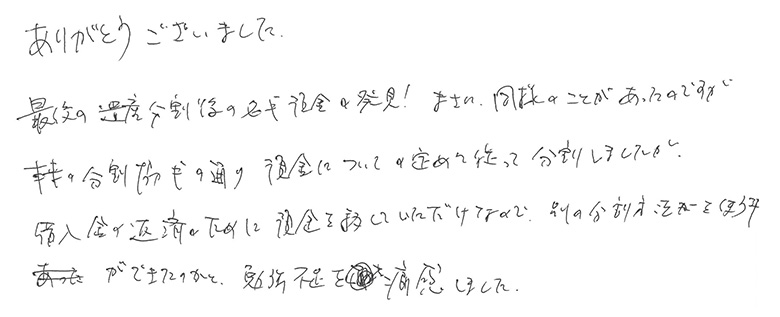 ありがとうございました。
最後の遺産分割後の名義預金の発見! まさに、同様のことがあったのですが
事후の分割協議の通り 預金についての定めに従って分割しましたが、
借入金の返済のために預金を移していただけなので、別の分割方法を
ができたのかと、勉強不足を痛感しました。